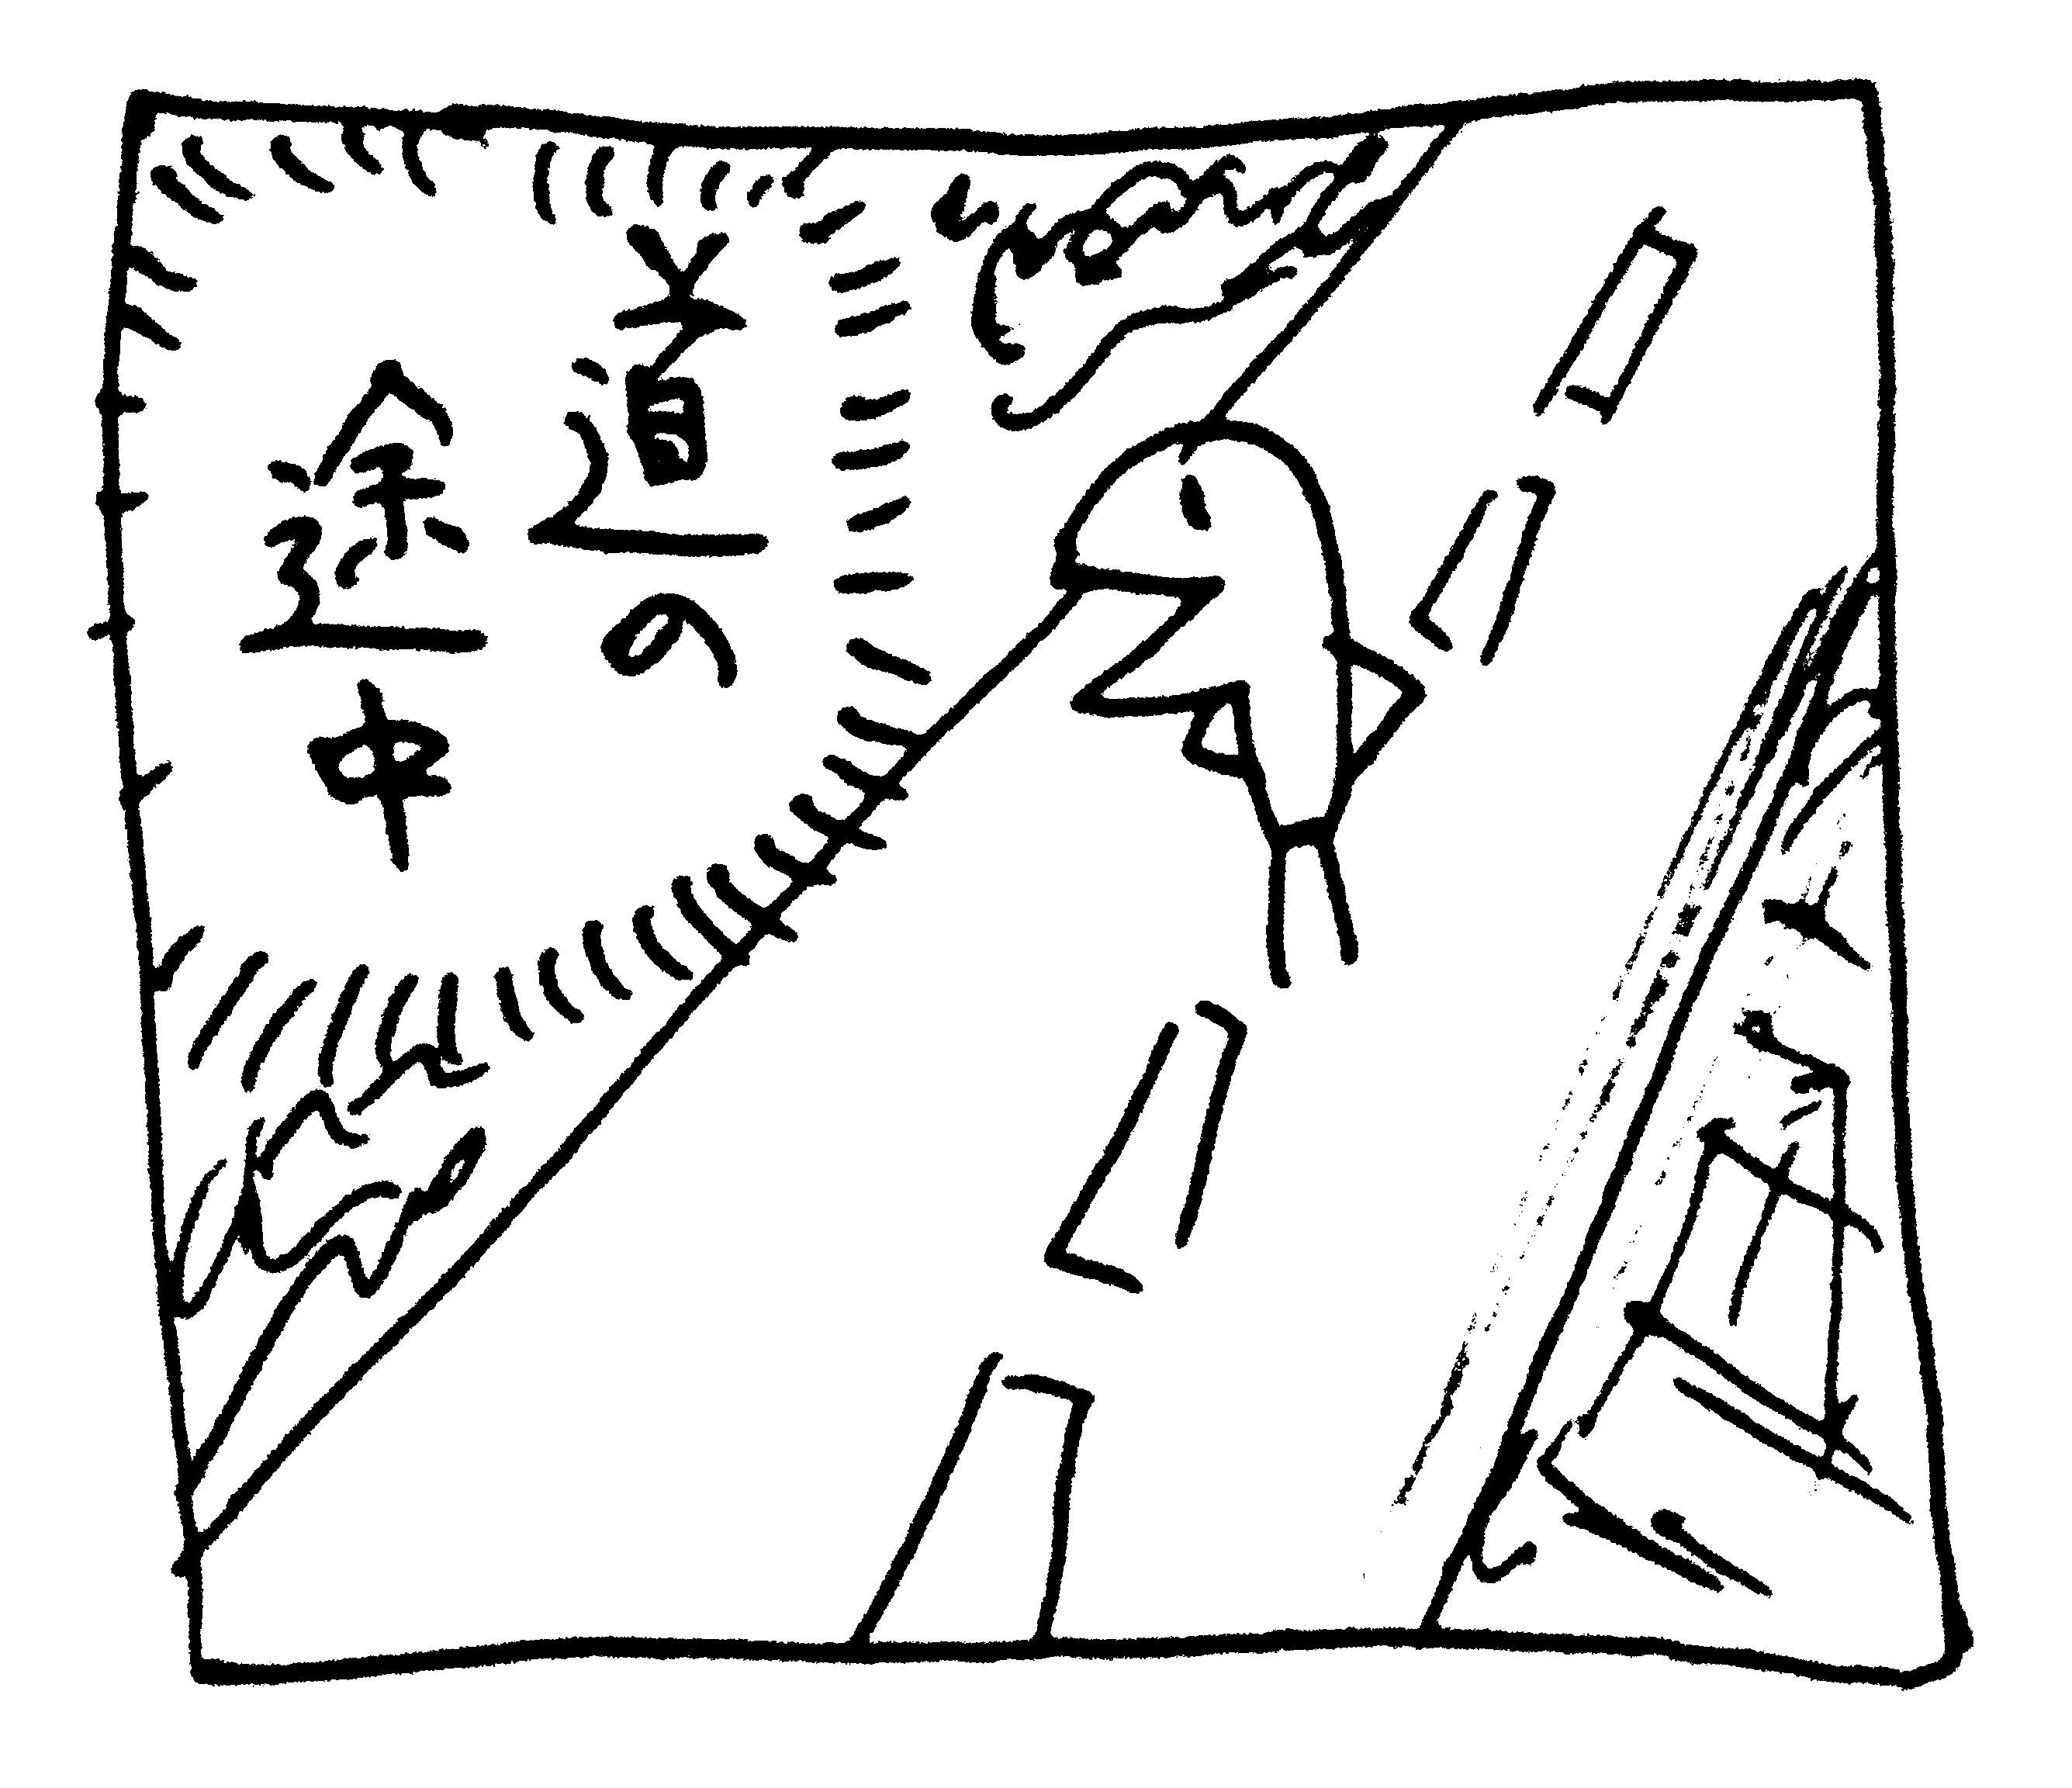 道の
途中